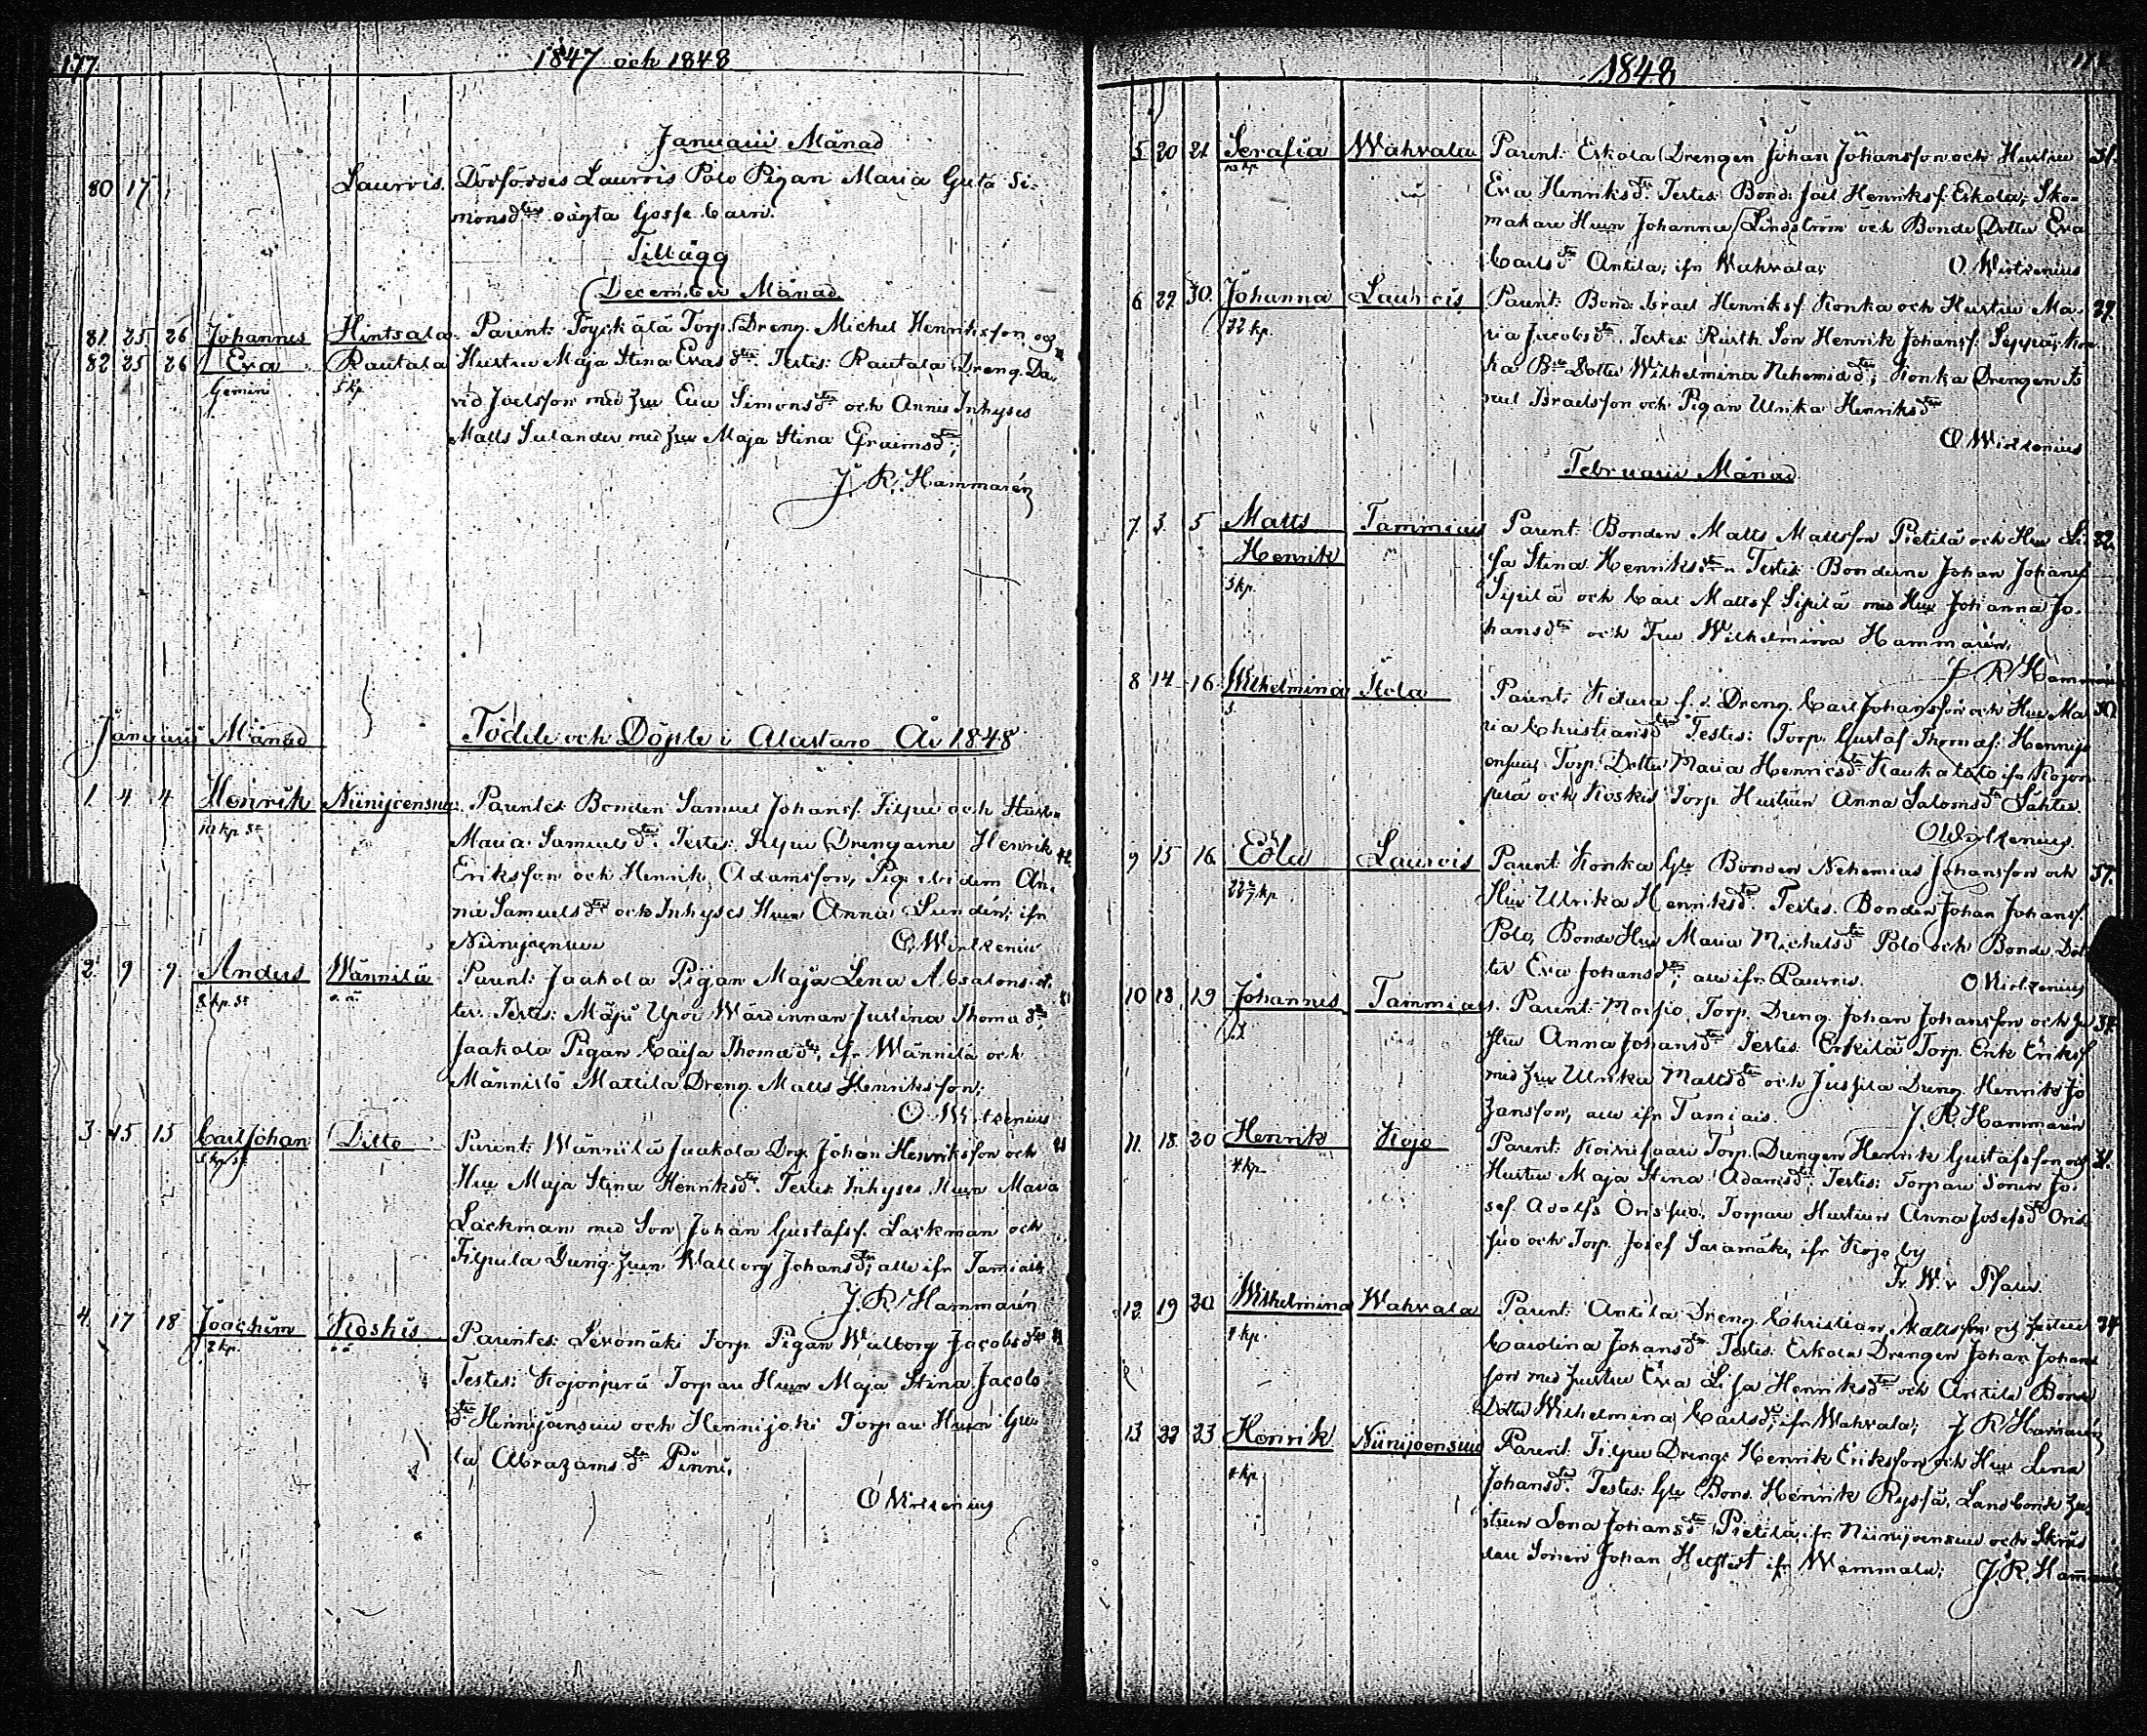 177
1847 och 1848
Januarii Månad
80 17 Laurois. Dödföddes Laurois Polo Pigan Maria Greta Si-
monsdtrs oägta Gosse barn.
Tillägg
December Månad
81. 25 26 Johannes Hintsala. Parent: Torp. Dreng. Michel Henriksson och
82 25 26 Eva Rautala Hustru Maja Stina Evasdtr. Testes: Rautala Dreng. Da-
Gemini 5 kp. vid Joelsson med hu Eva Simonsdtr och Annis Inhyses
Matts Selander med hu Maja Stina Efraimsdtr;
J. R. Hammarén
Januarii Månad
Födde och Döpte i Alastaro År 1848
1. 4 4 Henrik Niinijoensuu. Parentes Bonden Samuel Johansf. Filpu och Hust.
10 kp. st Maria Samuelsdtr. Testes: Filpu Drengarne Henrik
Eriksson och Henrik Adamsson, Pig. ibidem An-
na Samuelsdtr och Inhyses Hun Anna Lundén, ifr
Niinijoensuu O. Wirtzenius
2. 9 9 Anders Wännilä Parent: Jaakola Pigan Maja Lena Absalons d.
8 kp. st o. ä. ter. Testes: Wärdinnan Justina Thomadtr,
Jaakola Pigan Caisa Thomadtr, ifr Wännilä och
Männistö Mattila Dreng. Matts Henriksson;
O. Wirtzenius
3. 15 15 Carl Johan Ditto Parent: Wännilä Jaakola Drg. Johan Henriksson och
5 kp st Hu Maja Stina Henriksdtr. Testes: Inhyses Hun Maria
Lackman med Son Johan Gustafsf. Lackman och
Filpula Dreng hun Walborg Johansdtr, alle ifr Tamiais
J. R. Hammarén
4. 17 18 Joachim Koskis Parentes: Levomäki Torp. Pigan Walborg Jacobsdtr
2 kp. o. ä. Testes: Kojonperä Torpare Hun Maja Stina Jacobs
dtr Hennijoensuu och Hennijoki Torpare Hun Gre-
ta Abrahamsdtr Pinni.
O Wirtzenius
1848
5. 20 21 Serafia Wahvala Parent: Erkola Drengen Johan Johansson och Hustru 31.
Eva Henriksdtr. Testes: Bond: Joel Henriksf. Erkola, Sko-
makare Hun Johanna Lindström och Bonde Dotter Eva
Carlsdtr Antila, ifr Wahvala; O Wirtzenius
6 29. 30. Johanna Laurois Parent: Bond: Israel Henriksf. Konka och Hustru Ma- 29.
22 kp. ria Jacobsdtr. Testes: Rusth. Son Henrik Johansf. Seppä, Kon-
ka Bde Dotter Wilhelmina Nehemiadtr; Konka Drengen Is
rael Israelsson och Pigan Ulrika Henriksdtr
O Wirtzenius
Februarii Månad
7. 3. 5 Matts Tammiais Parent: Bonden Matts Mattsson Pietilä och Hu Li- 32.
Henrik sa Stina Henriksdtr. Testes: Bönderne Johan Johansf
5 kp. Sipilä och Carl Mattsf. Sipilä med Hu Johanna Jo-
hansdtr och Fru Wilhelmina Hammarén.
J. R. Hammarén
8 14 16. Wilhelmina Parent: f. d. Dreng. Carl Johansson och Hu Ma 30.
ria Christiansdtr Testes: Torp. Gustaf Thomasf. Hennijo
ensuu, Torp. Dotter Maria Henricsdtr Kaukatalo ifr Kojon-
perä och Koskis Torp. Hustrun Anna Salomsdtr Sähter.
O Wirtzenius.
9 15 16. Edla Laurois Parent: Konka Gle Bonden Nehemias Johansson och 37.
22 kp. Hu Ulrika Henriksdtr. Testes. Bonden Johan Johansf.
Polo, Bonde Hu Maria Michelsdtr Polo och Bonde Dot-
ter Eva Johansdtr; alle ifr. Laurois. O Wirtzenius
10 18 19 Johannes Tammiais. Parent: Torp. Dreng. Johan Johansson och Hu 34.
stru Anna Johansdtr Testes: Erkilä Torp. Erik Eriksf
med hu Ulrika Mattsdtr och Jussila Dreng. Henrik Jo
hansson, alle ifr Tamiais. J. R. Hammarén
11. 18 20 Henrik Kojo Parent: Koivusaari Torp. Drengen Henrik Gustafsson och 31.
4 kp. Hustru Maja Stina Adamsdtr. Testes: Torpare Sonen Jo-
sef Adolfs Orisuo, Torpare Hustrun Anna Josefsdtr Ori-
suo och Torp. Josef Saramäki, ifr Kojo by
12 19 20 Wilhelmina Wahvala Parent: Antila Dreng. Christian Mattsson och Hustru 34
1 kp. Carolina Johansdtr Testes: Erkola Drengen Johan Johans
son med hustru Eva Lisa Henriksdtr och Antila Bonde
Dotter Wilhelmina Carlsdtr, ifr Wahvala; J R Hammarén
13 22 23 Henrik Niinijoensuu Parent: Filpu Dreng: Henrik Eriksson och Hu Lena
1 kp. Johansdtr. Testes: Gle Bond. Henrik Ryssä, Landbonde Hu-
strun Lena Johansdtr Pietilä, ifr Niinijoensuu och Skräd
dare Sonen Johan Helffert ifr Wammala; J. R. Hammarén